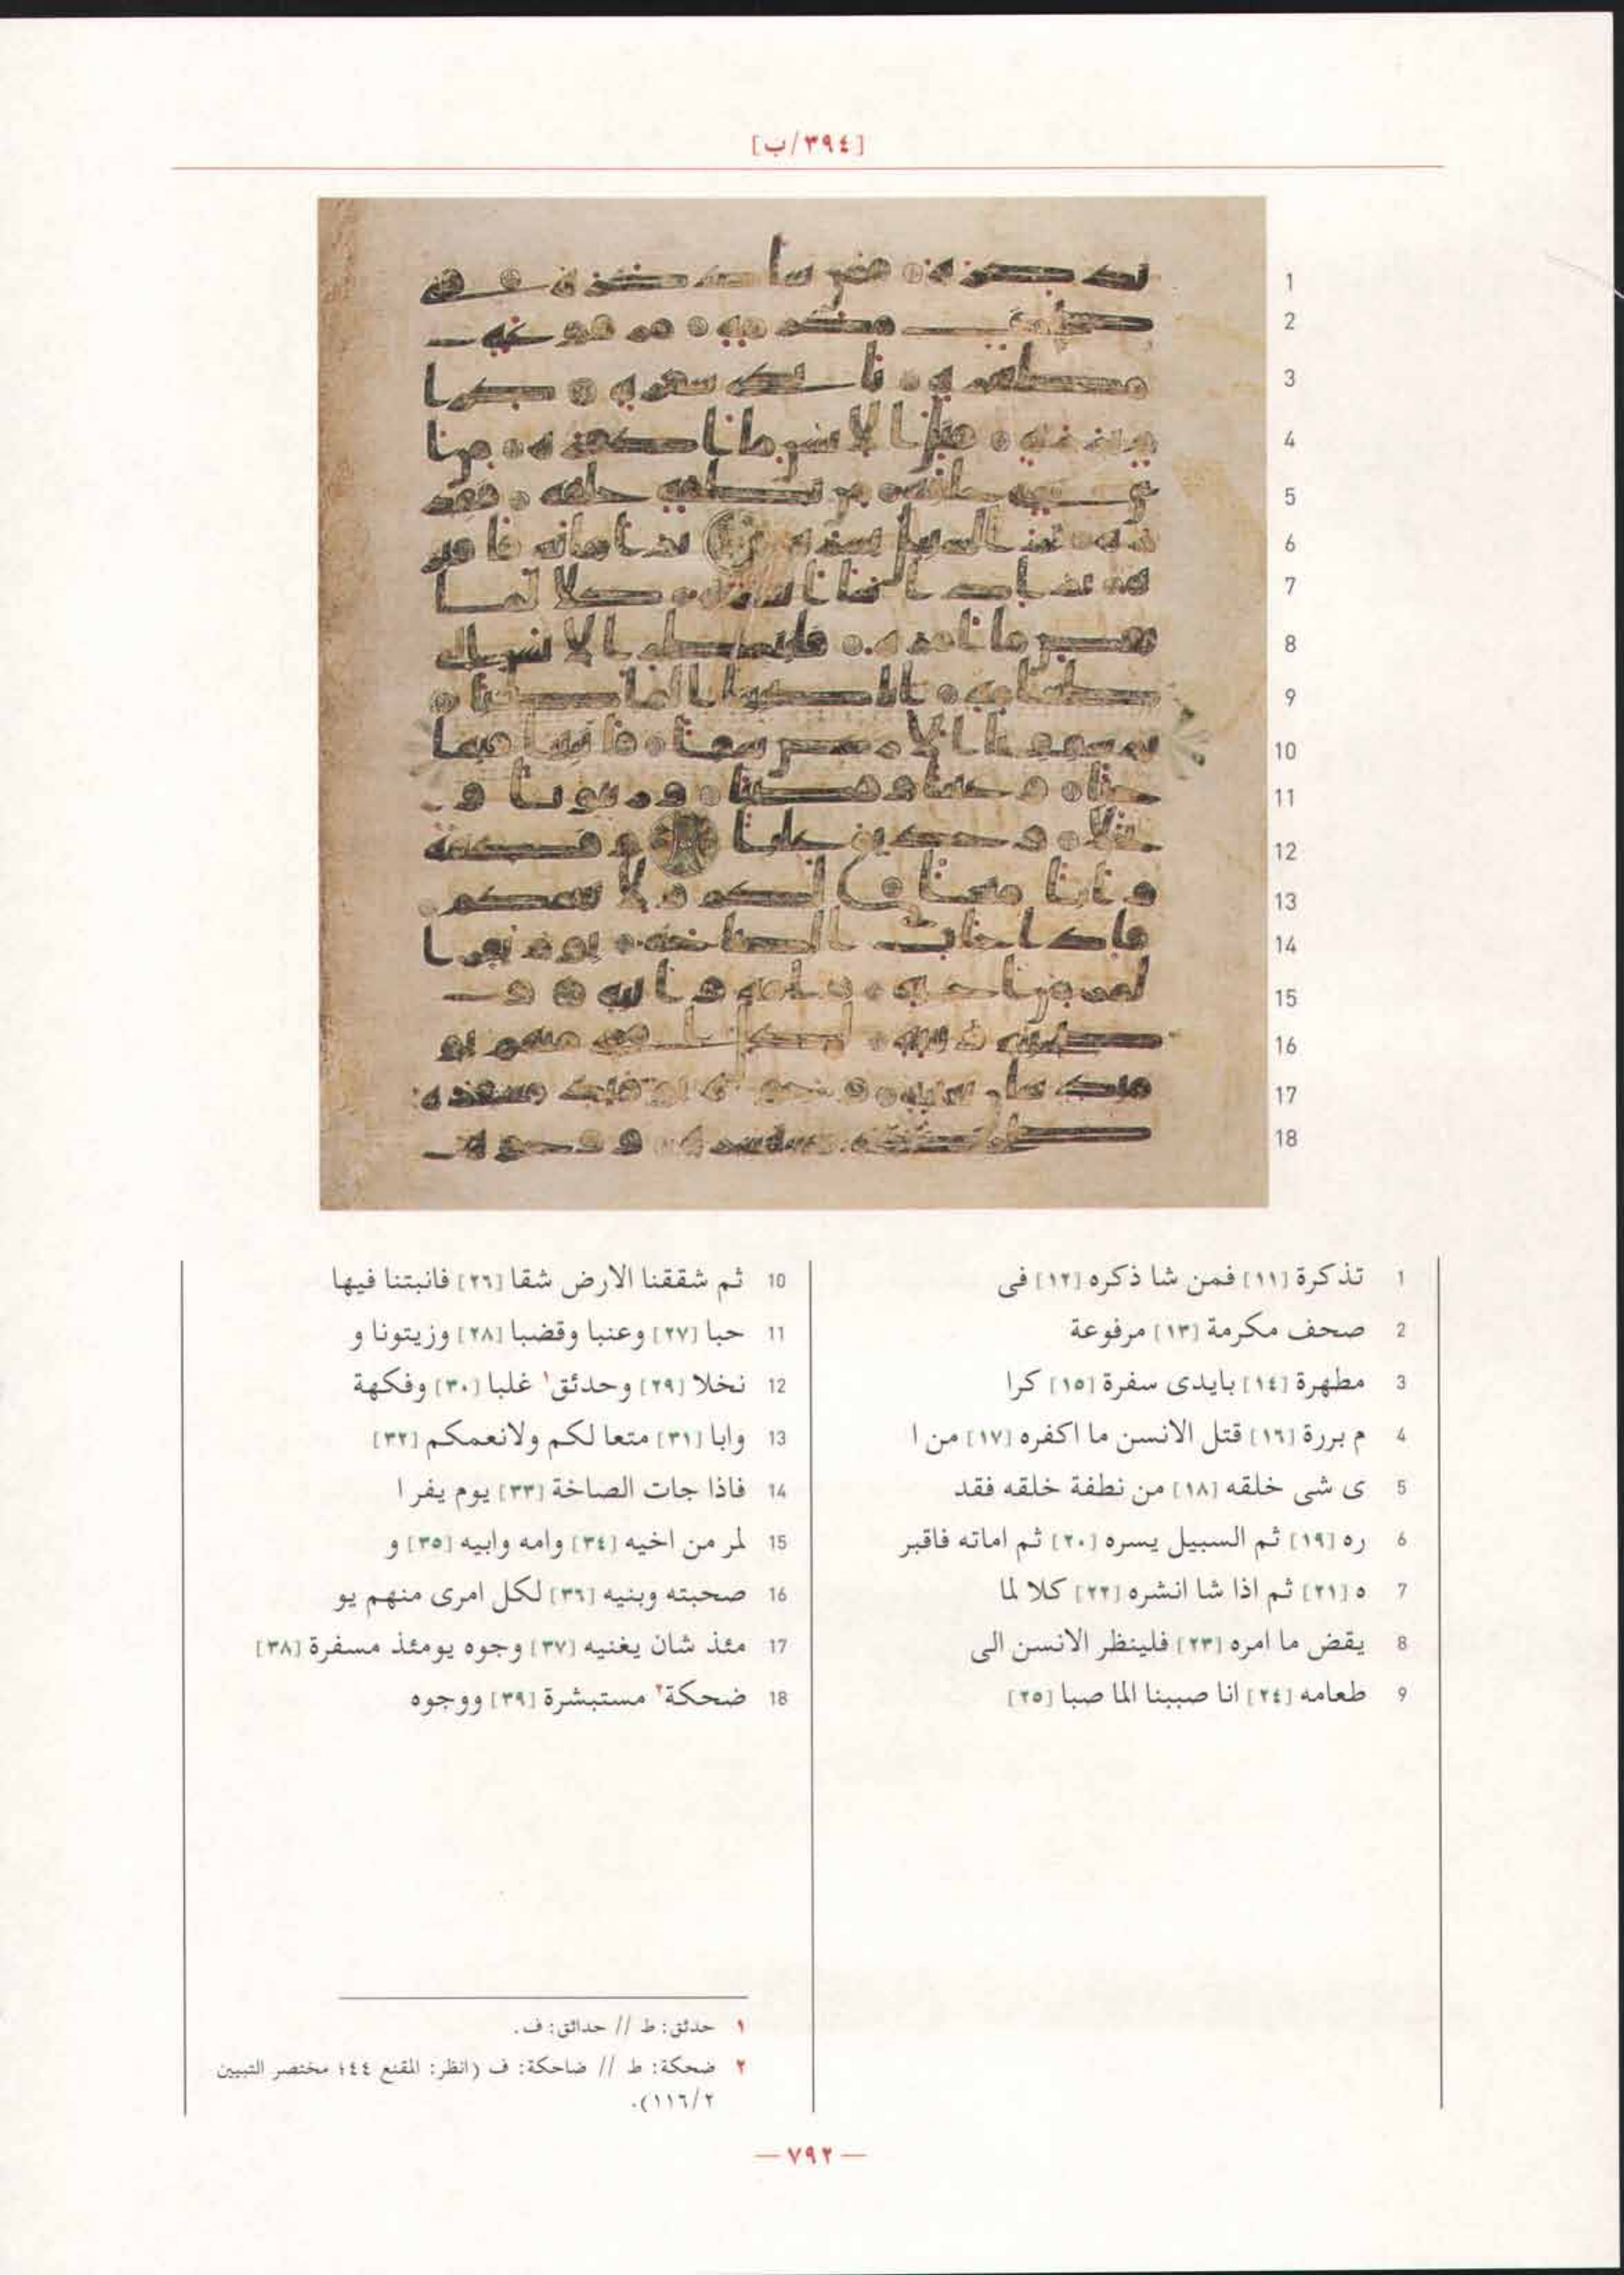 [٣٩٤/ب]
1 تذكرة [١١] فمن شا ذكره [١٢] فى
2 صحف مكرمة [١٣] مرفوعة
3 مطهرة [١٤] بايدى سفرة [١٥] كرا
4 م بررة [١٦] قتل الانسن ما اكفره [١٧] من ا
5 ى شى خلقه [١٨] من نطفة خلقه فقد
6 ره [١٩] ثم السبيل يسره [٢٠] ثم اماته فاقبر
7 ه [٢١] ثم اذا شا انشره [٢٢] كلا لما
8 يقض ما امره [٢٣] فلينظر الانسن الى
9 طعامه [٢٤] انا صببنا الما صبا [٢٥]
10 ثم شققنا الارض شقا [٢٦] فانبتنا فيها
11 حبا [٢٧] وعنبا وقضبا [٢٨] وزيتونا و
12 نخلا [٢٩] وحدئق١ غلبا [٣٠] وفكهة
13 وابا [٣١] متعا لكم ولانعمكم [٣٢]
14 فاذا جات الصاخة [٣٣] يوم يفر ا
15 لمر من اخيه [٣٤] وامه وابيه [٣٥] و
16 صحبته وبنيه [٣٦] لكل امرى منهم يو
17 مئذ شان يغنيه [٣٧] وجوه يومئذ مسفرة [٣٨]
18 ضحكة٢ مستبشرة [٣٩] ووجوه
١ حدئق: ط // حدائق: ف.
٢ ضحكة: ط // ضاحكة: ف (انظر: المقنع ٤٤؛ مختصر التبيين
١١٦/٢).
— ٧٩٢ —